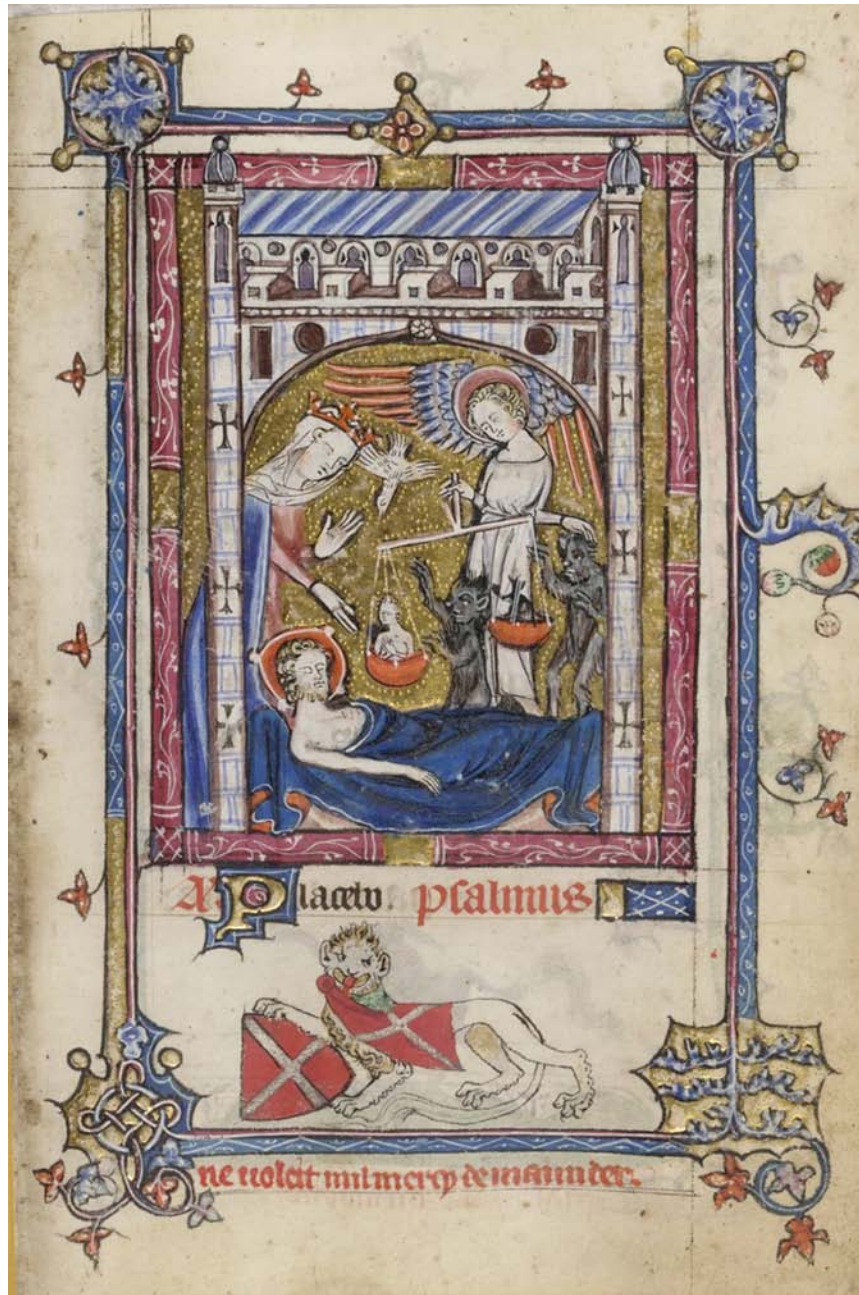 A Placebo psalmus
ne voleit nul mercy demaunder.